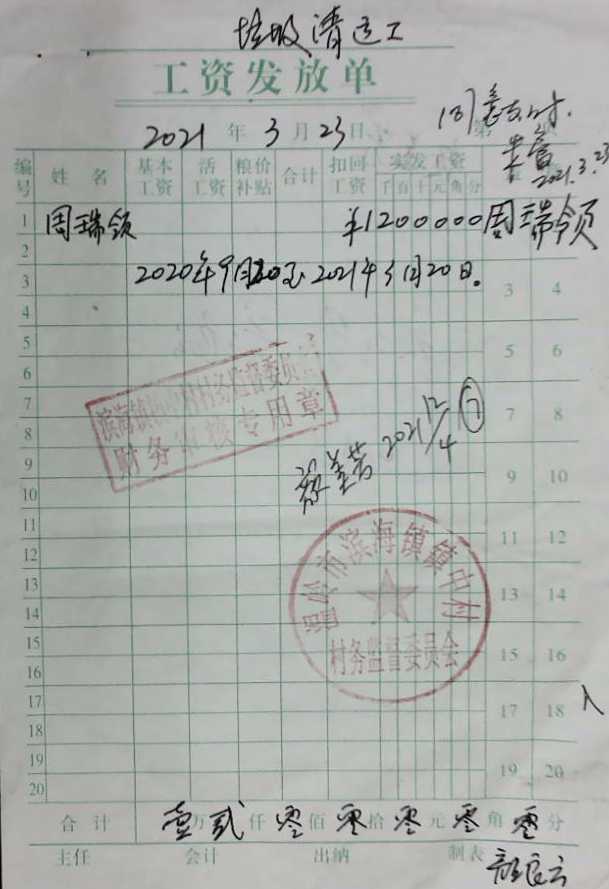 垃圾清运工
工资发放单
2021年3月23日 第
同意支付.
2021.3.23
编号 姓名 基本工资 活工资 粮价补贴 合计 扣回工资 实发工资 千百十元角分
1 周瑞领 ¥1200000 周瑞领
2
3 2020年9月20至2021年3月20日。 3 4
4
5 5 6
6
7 7 8
滨海镇镇中村村务监督委员会
财务审核专用章
2021 12/4 ⑦
8
9 9 10
10
11 11 12
12
13 13 14
14
温岭市滨海镇镇中村
村务监督委员会
15 15 16
16
17 17 18
18
19 19 20
20
合计 壹万贰仟零佰零拾零元零角零分
主任 会计 出纳 制表